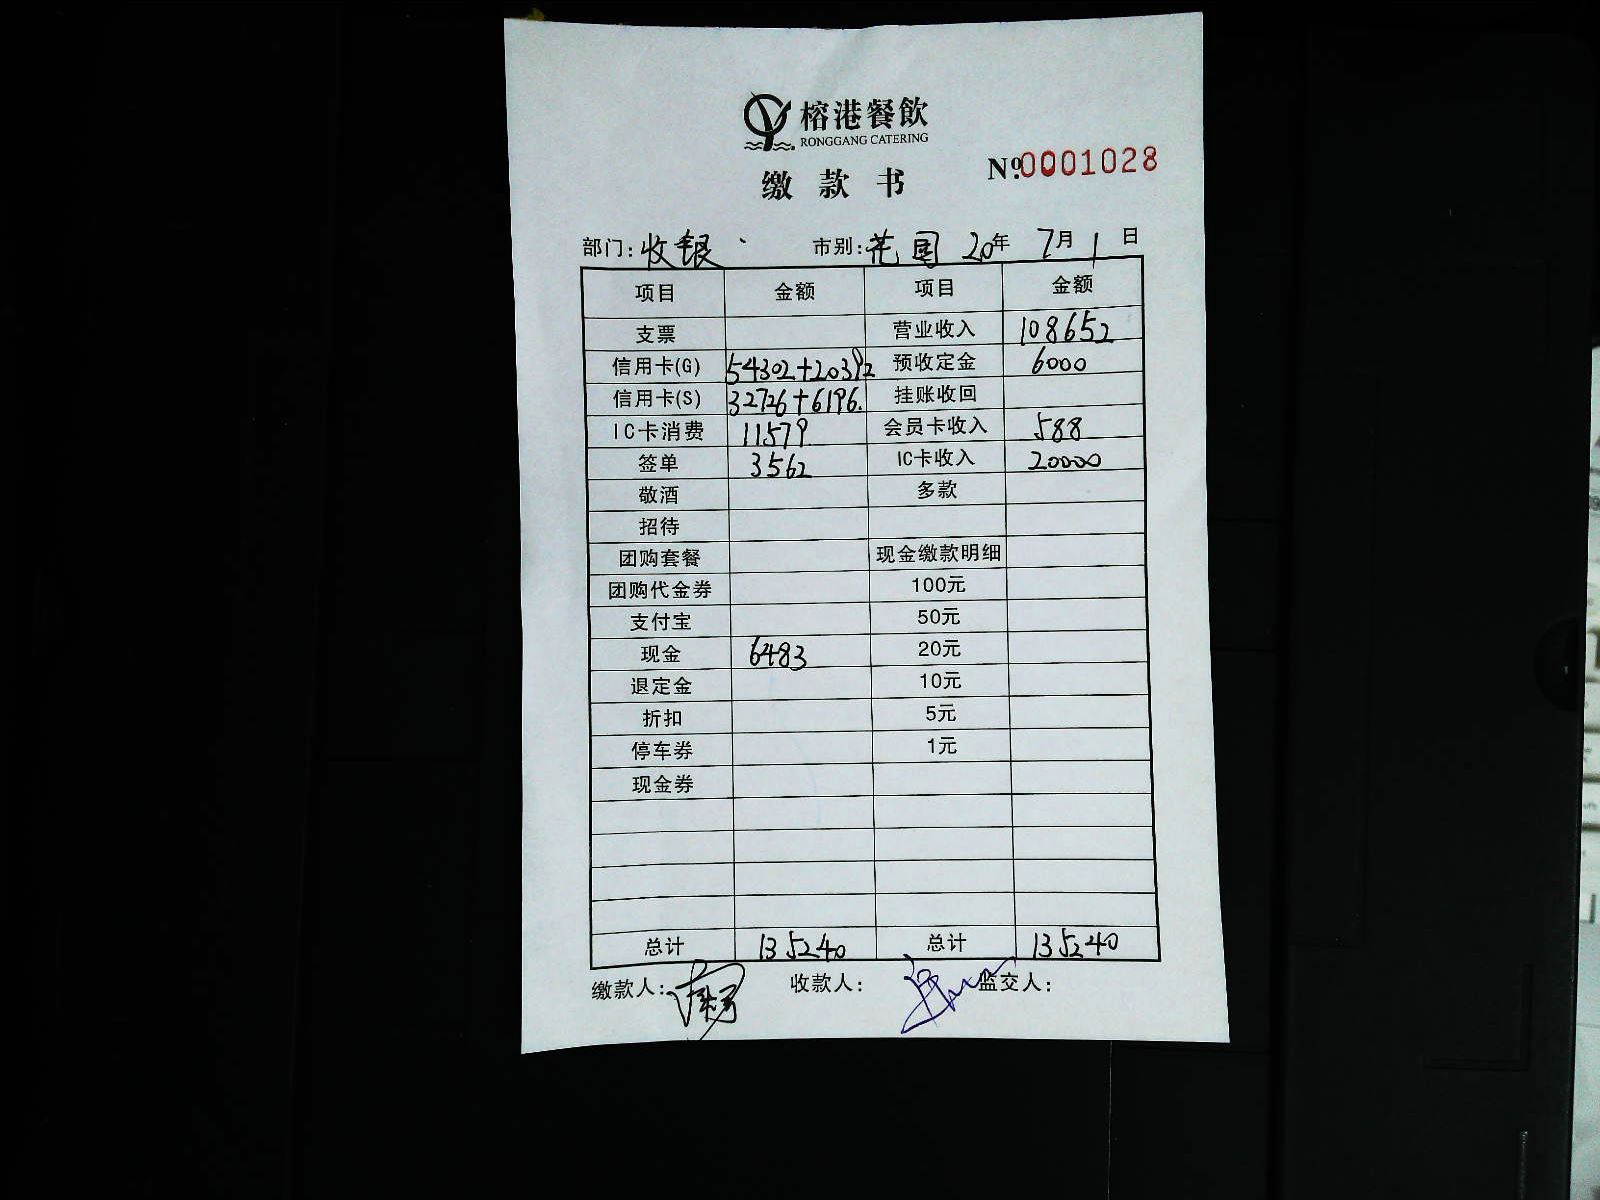 榕港餐飲
RONGGANG CATERING
缴款书
№0001028
部门:收银 市别:花园 20年 7月 1日
项目 金额 项目 金额
支票 营业收入 108652
信用卡(G) 54302+20392 预收定金 6000
信用卡(S) 32726+6196. 挂账收回
IC卡消费 11579 会员卡收入 588
签单 3562 IC卡收入 20000
敬酒 多款
招待
团购套餐 现金缴款明细
团购代金券 100元
支付宝 50元
现金 6483 20元
退定金 10元
折扣 5元
停车券 1元
现金券
总计 135240 总计 135240
缴款人: 收款人: 监交人: